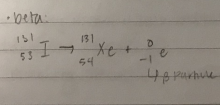 • beta:
¹³¹₅₃I → ¹³¹₅₄Xe + ⁰₋₁e
↳ β particle